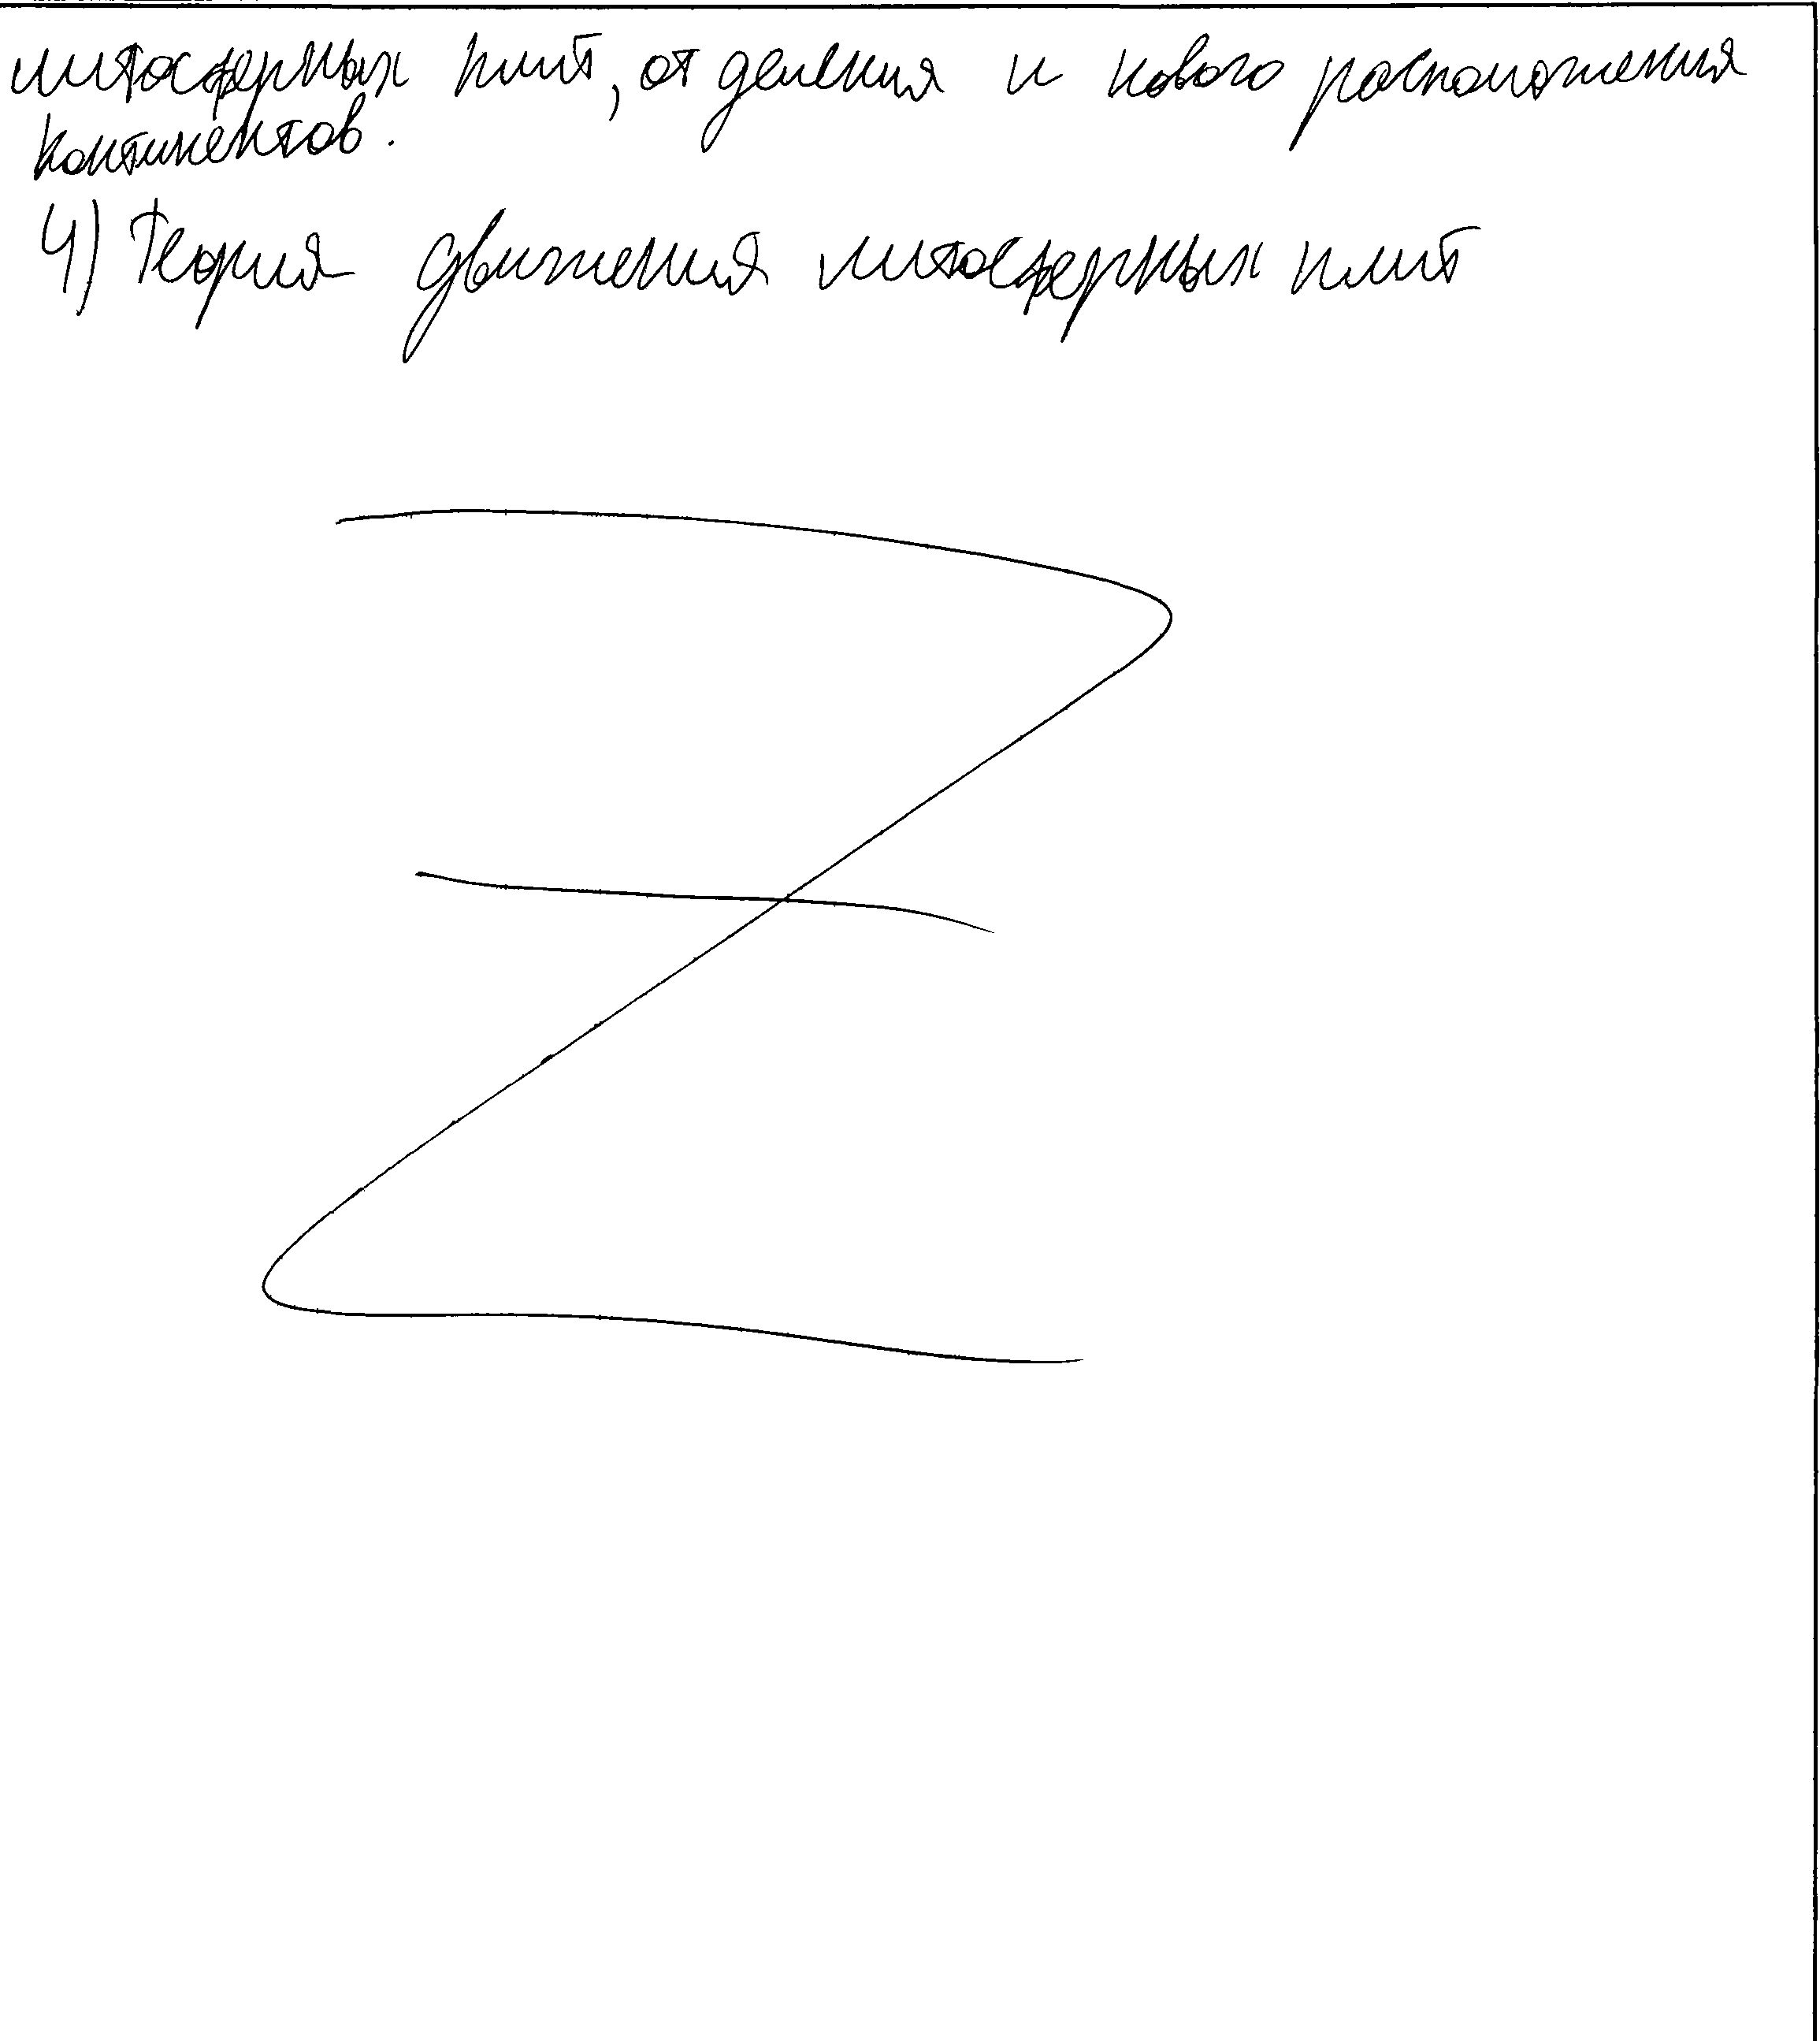 литосферных плит, отделения и нового расположения
континентов.
4) Теория движения литосферных плит